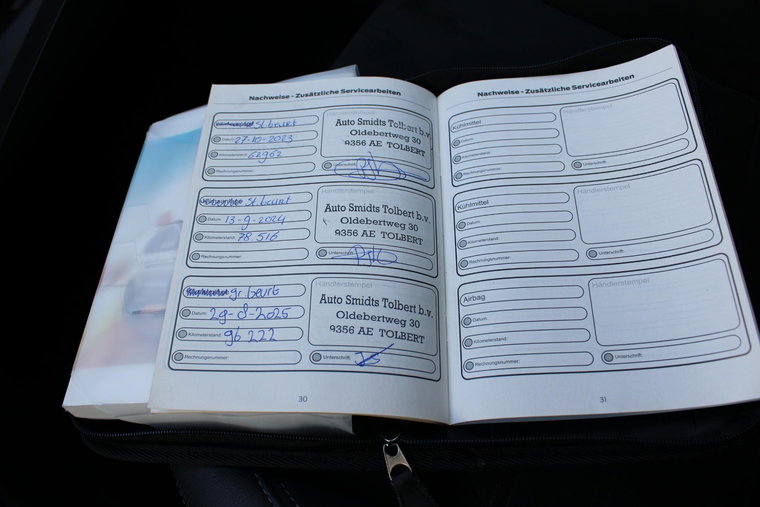 Nachweise - Zusätzliche Servicearbeiten
st beurt
Datum: 27-10-2023
Kilometerstand: 62962
Rechnungsnummer:
Händlerstempel
Auto Smidts Tolbert b.v.
Oldebertweg 30
9356 AE TOLBERT
Unterschrift:
st beurt
Datum: 13-9-2024
Kilometerstand: 78 516
Rechnungsnummer:
Händlerstempel
Auto Smidts Tolbert b.v.
Oldebertweg 30
9356 AE TOLBERT
Unterschrift:
gr beurt
Datum: 29-8-2025
Kilometerstand: 96 222
Rechnungsnummer:
Händlerstempel
Auto Smidts Tolbert b.v.
Oldebertweg 30
9356 AE TOLBERT
Unterschrift:
30
Nachweise - Zusätzliche Servicearbeiten
Kühlmittel
Datum:
Kilometerstand:
Rechnungsnummer:
Händlerstempel
Unterschrift:
Kühlmittel
Datum:
Kilometerstand:
Rechnungsnummer:
Händlerstempel
Unterschrift:
Airbag
Datum:
Kilometerstand:
Rechnungsnummer:
Händlerstempel
Unterschrift:
31